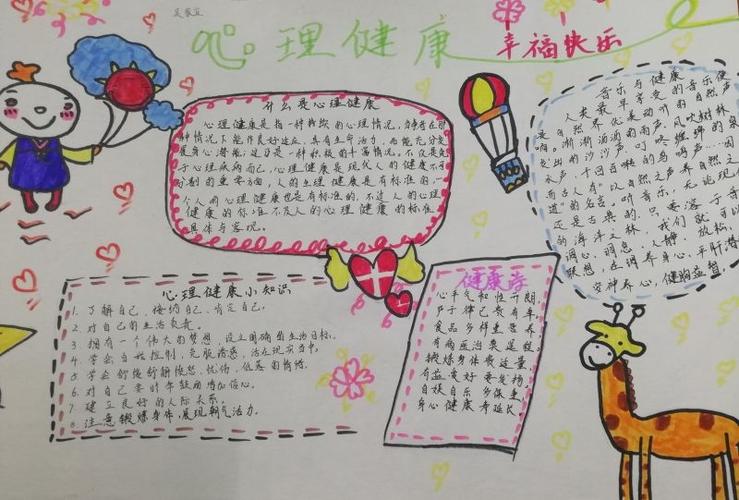 心理健康
幸福快乐
什么是心理健康
心理健康是指一种持续的心理情况,当事者在那
种情况下能作良好适应,具有生命活力,而能充分发
展身心潜能;这乃是一种积极的丰富情况。不仅是免
于心理疾病而已,心理健康是现代人的健康不可
分割的重要方面,人的生理健康是有标准的,一
个人的心理健康也是有标准的。不过人的心理
健康的标准不及人的心理健康的标准
具体与客观。
音乐与健康
人类最早享受的音乐便
是自然界优美动听的自然声
响。渐渐沥沥的雨声,风吹树林
发出的沙沙声,叮咚
水声,千回百啭的鸟鸣声…因
而古人有"以自然之声养自然之
道"的名言。听音乐,无论现代
还是古典的,只要溶于音
的海洋之林,我们就可以
调心,调息,入静,放松,
联想,在调养身心,平肝潜
安神养心,健脑益智
心理健康小知识
1. 了解自己,接纳自己,肯定自己。
2. 对自己的生活负责。
3. 拥有一个伟大的梦想,设立明确的生活目标。
4. 学会自我控制,克服诱惑,活在现实当中。
5. 学会舒缓舒解愤怒、忧伤、低落的情绪。
6. 对自己要时常鼓励增加信心。
7. 建立良好的人际关系。
8. 注意锻炼身体,展现朝气活力。
健康诗
心平气和性开朗
严于律己贵有年
食品多样重营养
有病医治莫延缓
锻炼身体贵适量
有益爱好要发扬
自娱自乐多保重
身心健康寿延长